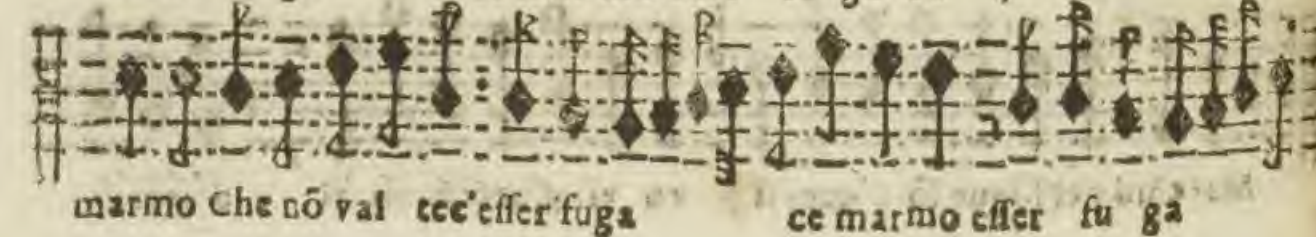 marmo Che nõ val tec'esser fuga ce marmo esser fu ga